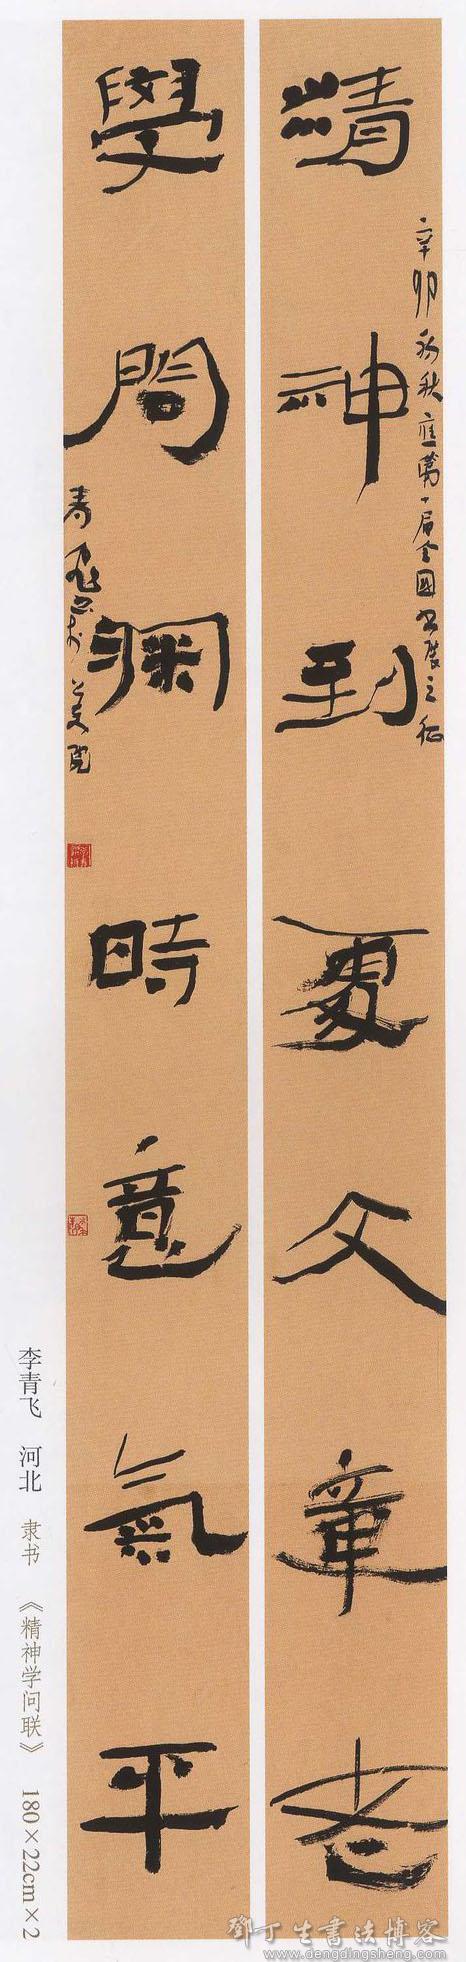 精神到處文章老
辛卯初秋應第一届全國书展之征
學問渊時意氣平
青飛书於
李青飞 河北 隶书 《精神学问联》 180×22cm×2
鄧丁生書法博客
www.dengdingsheng.com